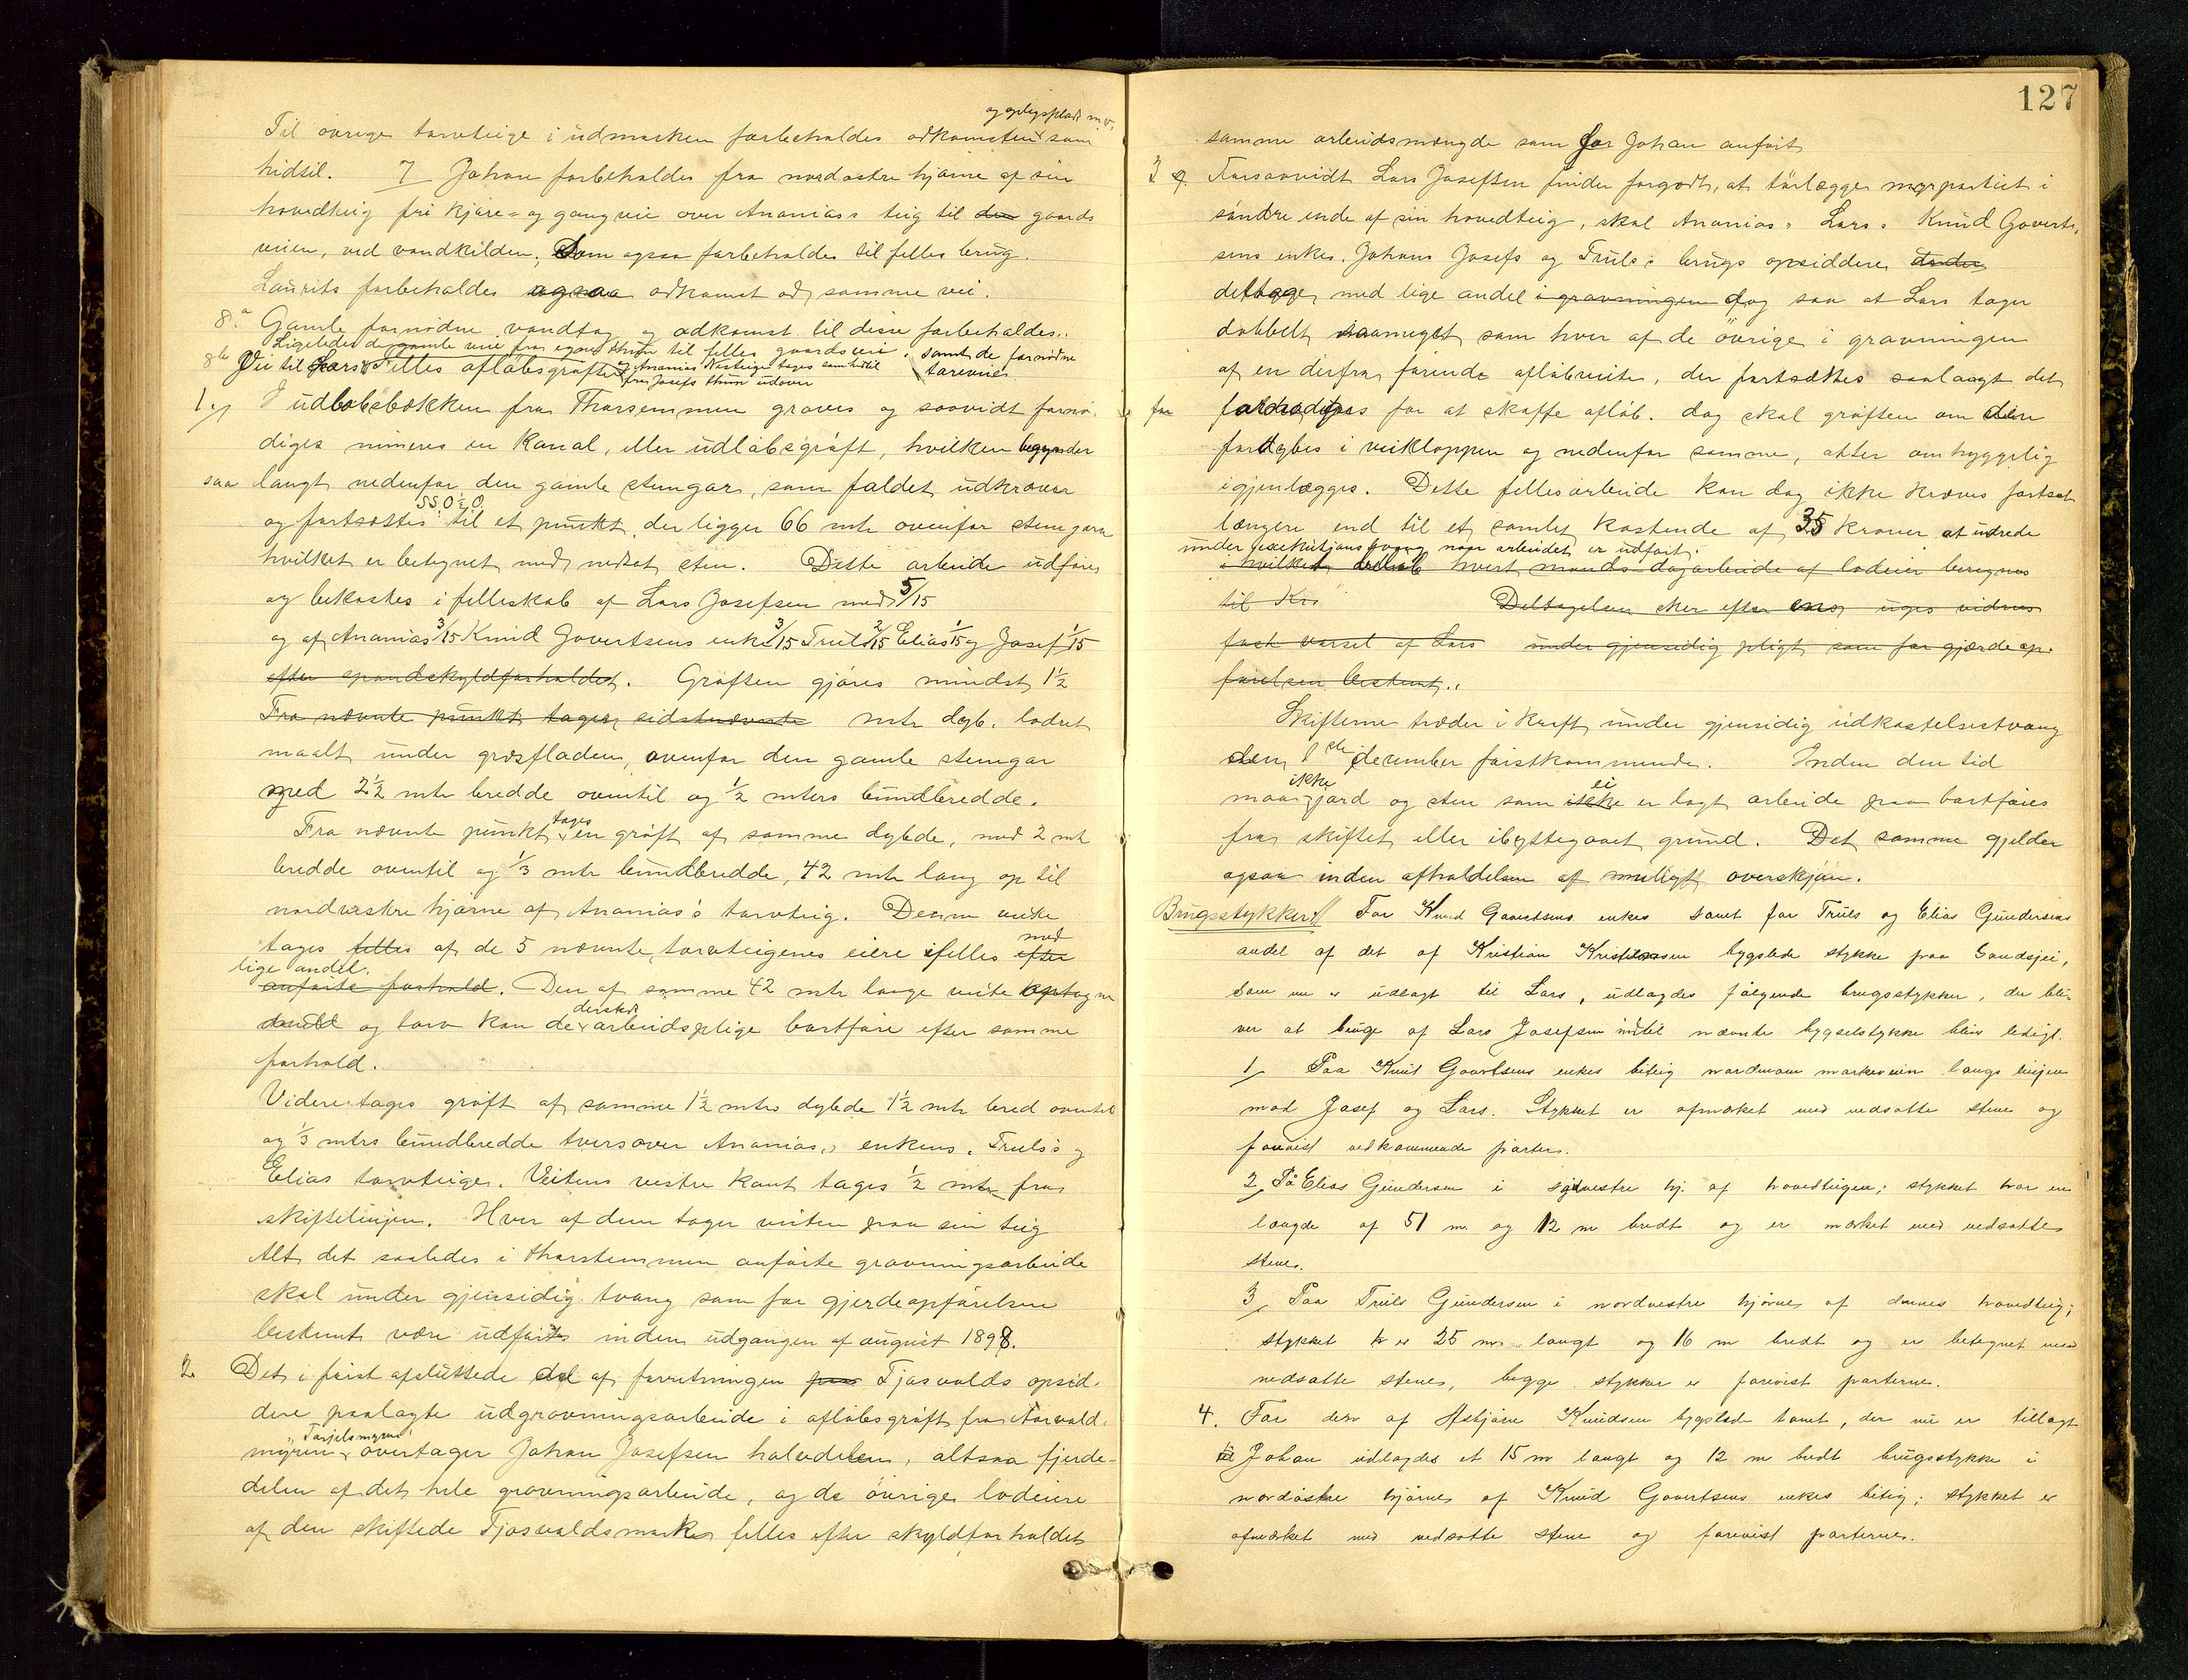 og oplagsplads m.v.
Til øvrige torvteige i udmarken forbeholdes adkomsten som
hidtil. 7 Johan forbeholdes fra nordostre hjørne af sin
hovedteig fri kjøre= og gangvei over Ananias's teig til den gaards
veien, ved vandkilden, som ogsaa forbeholdes til felles brug.
Laurits forbeholdes ogsaa adkomst ad samme vei.
8.a Gamle fornødne vandtag og adkomst til disse forbeholdes..
Ligeledes de gamle veie fra egen thun til felles gaardsvei. samt de fornødne
8b Vei til Lars's Felles afløbsgrøfter og Ananias Vesteige tages som hidtil torveveie
fra Josefs thun udover
1./ I udløbsbækken fra Tharsemmen graves og saavidt fornø-
diges mineres en Kanal, eller udløbsgrøft, hvilken begynder
saa langt nedenfor den gamle stemgar, som faldet udkræver
SSO½O
og fortsættes til et punkt der ligger 66 mtr ovenfor stemgara
hvilket er betegnet med nedsat sten. Dette arbeide udføres
og bekostes i felleskab af Lars Josefsen med 5/15
og af Ananias 3/15 Knud Govertsens enke 3/15 Truls 2/15 Elias 1/15 og Josef 1/15
efter grundskyldforholdet. Grøften gjøres mindst 1½
Fra nævnte punkt tages sidstnævnte mtr dyb, lodret
maalt under græsfladen, ovenfor den gamle stemgar
med 2½ mtr bredde oventil og ½ mters bundbredde.
Fra nævnte punkt tages en grøft af samme dybde, med 2 mtr
bredde oventil og 1/3 mtr bundbredde, 42 mtr lang op til
nordvestre hjørne af Ananias's torvteig. Denne veite
tages felles af de 5 nævnte torvteigenes eiere ifelles efter med
lige andel.
anførte forhold. Den af samme 42 mtr lange veite optagne
dersteds
dand og torv kan de arbeidspligtige bortføre efter samme
forhold.
Videre tages grøft af samme 1½ mtrs dybde 1½ mtr bred oventil
og 1/3 mtrs bundbredde tversover Ananias,s enkens, Truls's og
Elias torvteiger. Veitens vestre kant tages ½ mtr fra
skiftelinjen. Hver af dem tager veiten paa sin teig
Alt det saaledes i Tharstemmen anførte gravningsarbeide
skal under gjensidig tvang som for gjerdeopførelsen
bestemt være udført inden udgangen af august 1898.
2. Det i først afsluttede del af forretningen paa Tjosvolds opsid-
dere paalagte udgravningsarbeide i afløbsgrøft fra Aarvold.
"Tarjelsmyren"
myren overtager Johan Josefsen halvdelen, altsaa fjerde-
delen af det hele gravningsarbeide, og de øvrige lodeiere
af den skiftede Tjosvoldsmark felles efter skyldforholdet
127
samme arbeidsmængde som for Johan anført
3 Forsaavidt Lars Josefsen finder forgodt, at tørlægge myrpartiet i
søndre ende af sin hovedteig, skal Ananias, Lars, Knud Goverts.
sens enkes, Johans Josefs og Truls's brugs opsiddere
deltage med lige andel i gravningen dog saa at Lars tager
dobbelt saameget som hver af de øvrige i gravningen
af en derfra førende afløbveite, der fortsættes saalangt det
for fornødiges for at skaffe afløb. dog skal grøften om den
fordybes i veikloppen og nedenfor samme, atter omhyggelig
igjenlægges. Dette fellesarbeide kan dog ikke kræves fortsat
længere end til et samlet kostende af 35 kroner at udrede
under exekutjonstvang naar arbeidet er udført.
i hvilket beløb hvert mands dagarbeide af lodeier beregnes
til Kr. Deltagelsen sker efter ens uges vidnes
fast varsel af Lars under gjensidig pligt som for gjærdeop-
førelsen bestemt..
Skifterne træder i kraft under gjensidig udkastelsestvang
den 1ste december førstkommende. Inden den tid
ikke ei
maa gjærd og sten som ikke er lagt arbeide paa bortføres
fra skiftet eller ibyttegavet grund. Det samme gjelder
ogsaa inden afholdelsen af muligt overskjøn.
Brugsstykker: For Knud Govertsens enkes samt for Truls og Elias Gundersens
andel af det af Kristian Kristensen bygslede stykke paa Sandsjei,
som nu er udlagt til Lars, udlagdes følgende brugsstykker, der bli-
ver at bruge af Lars Josefsen indtil nævnte bygselstykke bliver ledigt.
1/ Paa Knud Govertsens enkes biteig nordenom markeveien langs linjen
mod Josef og Lars. Stykket er afmærket med nedsatte stene og
forevist vedkommende parter.
2, På Elias Gundersen i sydvestre hj. af hovedteigen; stykket har en
længde af 51 m og 12 m bredt og er mærket med nedsatte
stene.
3, Paa Truls Gundersen i nordvestre hjørne af dennes hovedteig;
stykket er 25 m langt og 16 m bredt og er betegnet med
nedsatte stene, begge stykker er forevist parterne.
4. For den af Astjørn Knudsen bygslede tomt, der nu er tillagt
til Johan udlagdes et 15 m langt og 12 m bredt brugsstykke i
nordøstre hjørne af Knud Govertsens enkes biteig; stykket er
afmærket med nedsatte stene og forevist parterne.